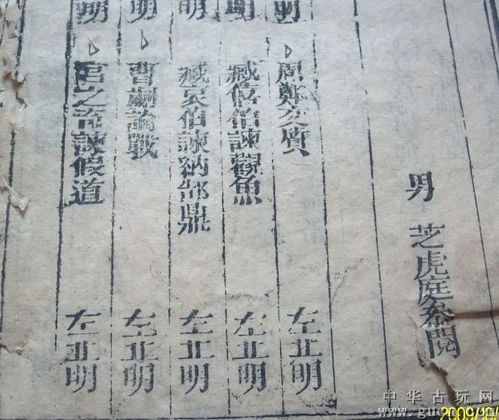 男 芝虎庭叅閱
明
周鄭交質 左丘明
明
臧僖伯諫觀魚 左丘明
明
臧哀伯諫納郜鼎 左丘明
明
曹劌論戰 左丘明
明
宮之奇諫假道 左丘明
中华古玩网